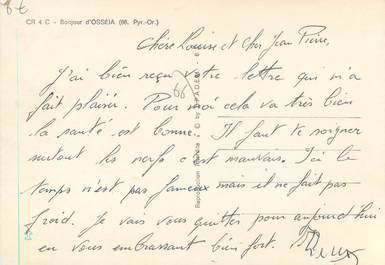 8€
CR 4 C - Bonjour d'OSSÉJA (66. Pyr.-Or.)
Chère Louise et Cher Jean Pierre,
J'ai bien reçu votre lettre qui m'a
fait plaisir. Pour moi cela va très bien
la santé est bonne. Il faut te soigner
surtout les nerfs c'est mauvais. Ici le
temps n'est pas fameux mais il ne fait pas
froid. Je vais vous quitter pour aujourd'hui
en vous embrassant bien fort.
66
Reproduction
© by